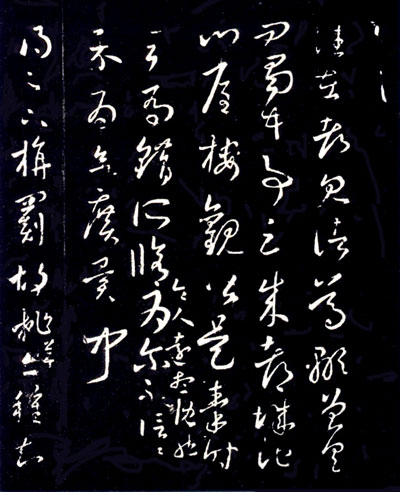 往在都見諸葛顒曾具
問蜀中事云成都城池
門屋樓觀皆是秦時
司馬錯所脩令人遠想慨然為尔不信一一
示為欲廣異聞
得足下旃罽胡桃藥二種知